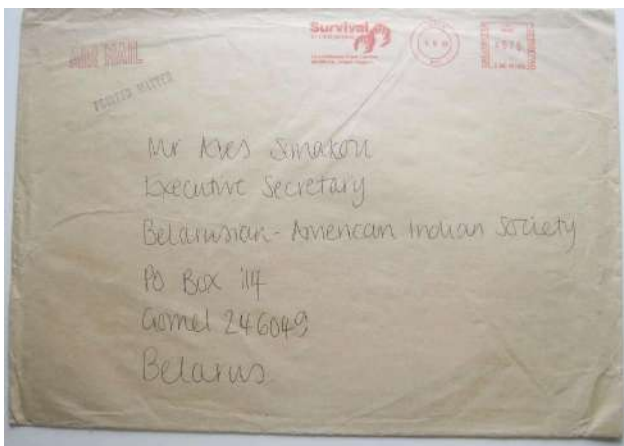 AIR MAIL
PRINTED MATTER
Survival
Mr Ales Simakou
Executive Secretary
Belarusian-American Indian Society
PO Box 114
Gomel 246049
Belarus